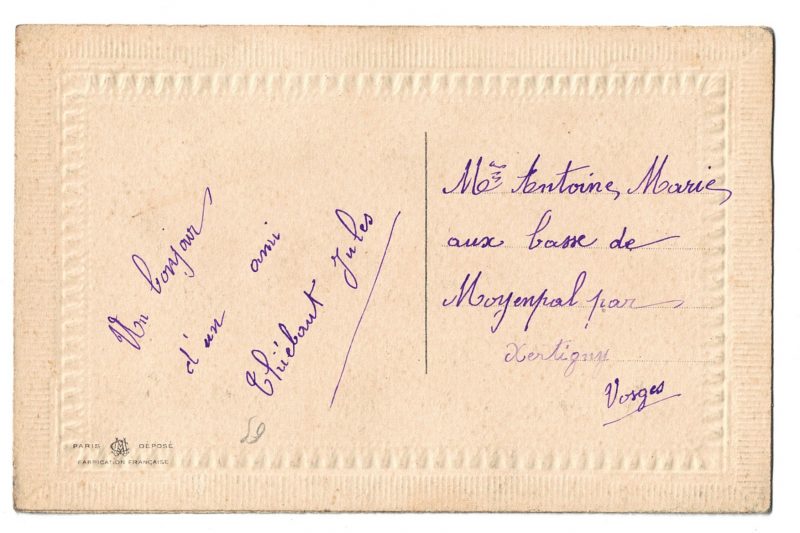 Un bonjour
d'un ami
Thiébaut Jules
Antoine Marie
aux basse de
Moyenpal par
Xertigny
Vosges
PARIS DÉPOSÉ
FABRICATION FRANÇAISE